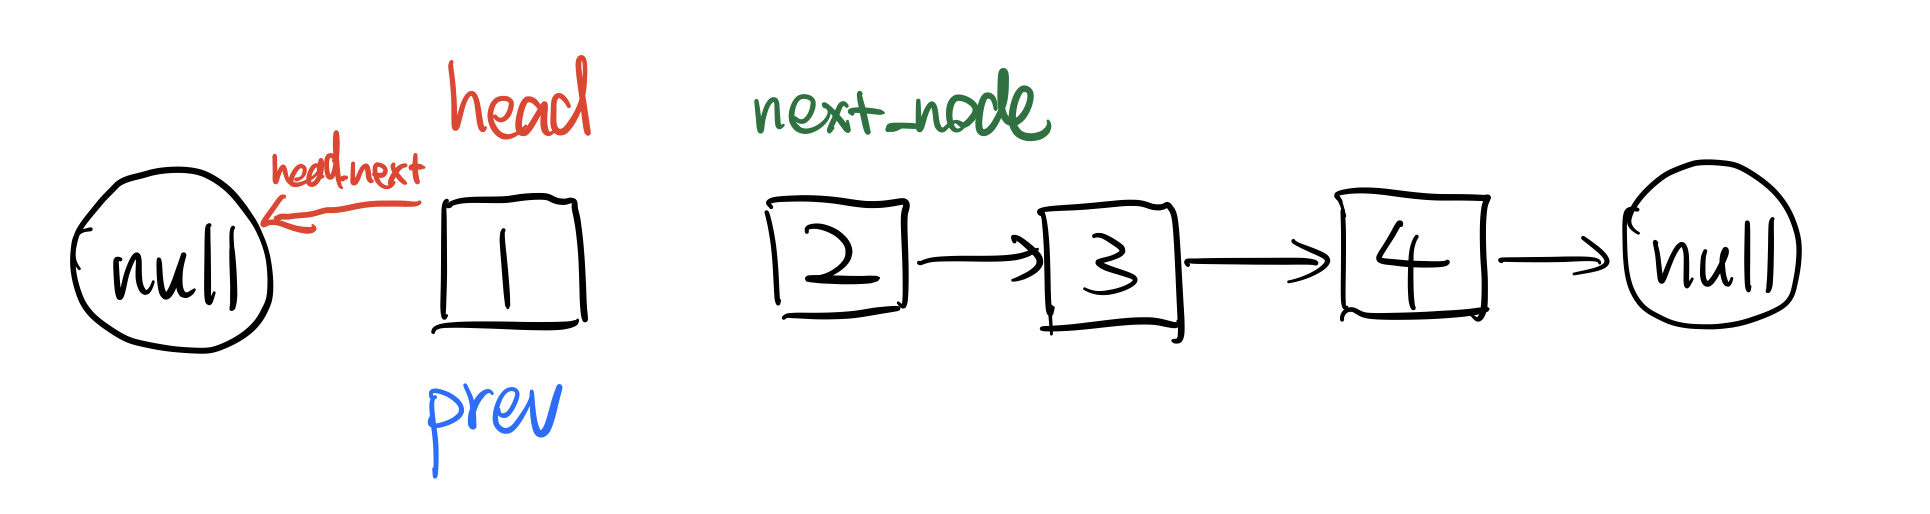 head
next_node
head.next
null
1
2
3
4
null
prev